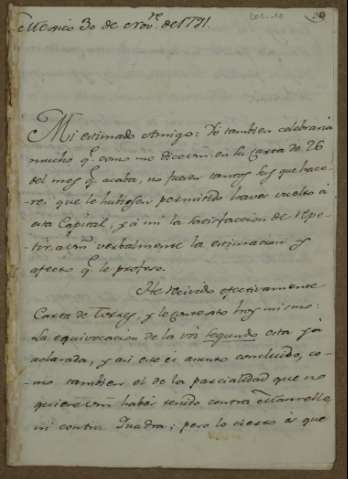 Mexico 30 de Nov.re de 1791.
Mi estimado Amigo: Yo tambien celebraria
mucho q.e como me dice vm en la Carta de 26
del mes q.e acaba, no fueran tantos los que hace-
res que le hubiesen permitido haver vuelto á
esta Capital, y á mi la satisfaccion de repe-
tir á vm verbalmente la estimacion y
afecto q.e le profeso.
He recivido efectivamente
Carta de Torres, y le contesto hoy mismo:
La equivocacion de la voz segundo esta ya
aclarada, y asi este es asunto concluido, co-
mo tambien el de la parcialidad que no
quiere vm haber tenido contra
ni contra Quadra; pero lo cierto es que